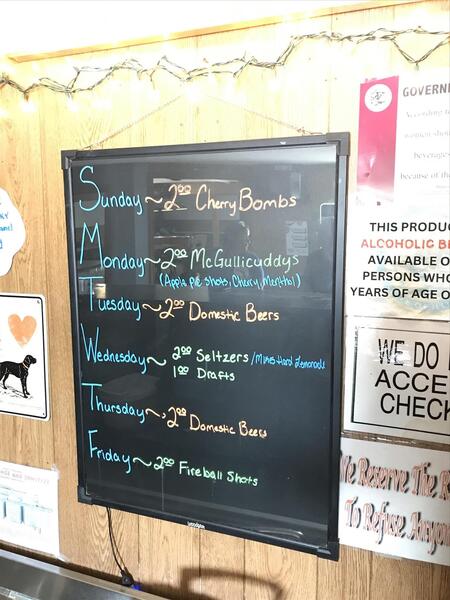 Sunday ~ 2.00 Cherry Bombs
Monday ~ 2.00 McGullicuddys
(Apple pie shots, Cherry, Menthol)
Tuesday ~ 2.00 Domestic Beers
Wednesday ~ 2.00 Seltzers / Mikes Hard Lemonade
1.00 Drafts
Thursday ~ 2.00 Domestic Beers
Friday ~ 2.00 Fireball Shots
GOVERN
According to
women shou
beverages
because of the
THIS PRODU
ALCOHOLIC BE
AVAILABLE O
PERSONS WHO
YEARS OF AGE O
WE DO
ACCE
CHECK
We Reserve The R
To Refuse Anyon